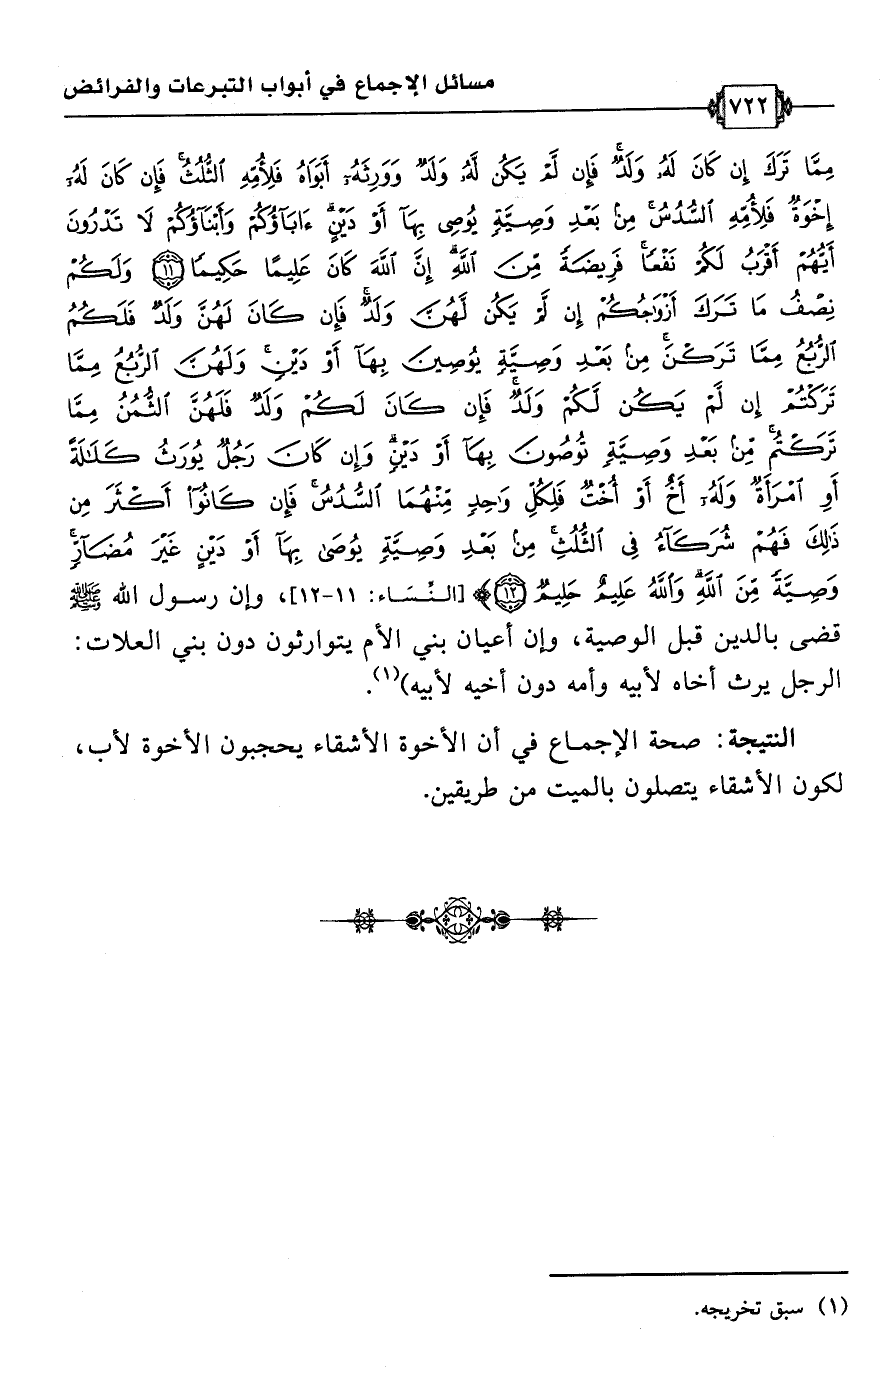 مسائل الإجماع في أبواب التبرعات والفرائض
٧٢٢
مِمَّا تَرَكَ إِن كَانَ لَهُۥ وَلَدٌۚ فَإِن لَّمْ يَكُن لَّهُۥ وَلَدٌ وَوَرِثَهُۥٓ أَبَوَاهُ فَلِأُمِّهِ ٱلثُّلُثُۚ فَإِن كَانَ لَهُۥٓ
إِخْوَةٌ فَلِأُمِّهِ ٱلسُّدُسُۚ مِنۢ بَعْدِ وَصِيَّةٍ يُوصِى بِهَآ أَوْ دَيْنٍۗ ءَابَآؤُكُمْ وَأَبْنَآؤُكُمْ لَا تَدْرُونَ
أَيُّهُمْ أَقْرَبُ لَكُمْ نَفْعًاۚ فَرِيضَةً مِّنَ ٱللَّهِۗ إِنَّ ٱللَّهَ كَانَ عَلِيمًا حَكِيمًا ١١ وَلَكُمْ
نِصْفُ مَا تَرَكَ أَزْوَٰجُكُمْ إِن لَّمْ يَكُن لَّهُنَّ وَلَدٌۚ فَإِن كَانَ لَهُنَّ وَلَدٌ فَلَكُمُ
ٱلرُّبُعُ مِمَّا تَرَكْنَۚ مِنۢ بَعْدِ وَصِيَّةٍ يُوصِينَ بِهَآ أَوْ دَيْنٍۚ وَلَهُنَّ ٱلرُّبُعُ مِمَّا
تَرَكْتُمْ إِن لَّمْ يَكُن لَّكُمْ وَلَدٌۚ فَإِن كَانَ لَكُمْ وَلَدٌ فَلَهُنَّ ٱلثُّمُنُ مِمَّا
تَرَكْتُمۚ مِّنۢ بَعْدِ وَصِيَّةٍ تُوصُونَ بِهَآ أَوْ دَيْنٍۗ وَإِن كَانَ رَجُلٌ يُورَثُ كَلَٰلَةً
أَوِ ٱمْرَأَةٌ وَلَهُۥٓ أَخٌ أَوْ أُخْتٌ فَلِكُلِّ وَٰحِدٍ مِّنْهُمَا ٱلسُّدُسُۚ فَإِن كَانُوٓا۟ أَكْثَرَ مِن
ذَٰلِكَ فَهُمْ شُرَكَآءُ فِى ٱلثُّلُثِۚ مِنۢ بَعْدِ وَصِيَّةٍ يُوصَىٰ بِهَآ أَوْ دَيْنٍ غَيْرَ مُضَآرٍّۚ
وَصِيَّةً مِّنَ ٱللَّهِۗ وَٱللَّهُ عَلِيمٌ حَلِيمٌ ١٢﴾ [النِّسَاء: ١١-١٢]، وإن رسول الله ﷺ
قضى بالدين قبل الوصية، وإن أعيان بني الأم يتوارثون دون بني العلات:
الرجل يرث أخاه لأبيه وأمه دون أخيه لأبيه)(١).
النتيجة: صحة الإجماع في أن الأخوة الأشقاء يحجبون الأخوة لأب،
لكون الأشقاء يتصلون بالميت من طريقين.
(١) سبق تخريجه.